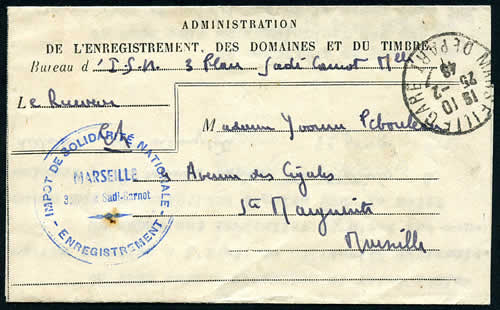 ADMINISTRATION
DE L'ENREGISTREMENT, DES DOMAINES ET DU TIMBRE
Bureau d'I.S.N. 3 Place Sadi Carnot Mlle
Le Receveur
Madame Yvonne
Avenue des Cigales
Ste Marguerite
Marseille
IMPOT DE SOLIDARITÉ NATIONALE
MARSEILLE
Sadi-Carnot
- ENREGISTREMENT -
MARSEILLE GARE
DEPART
19 10
25 -2
48